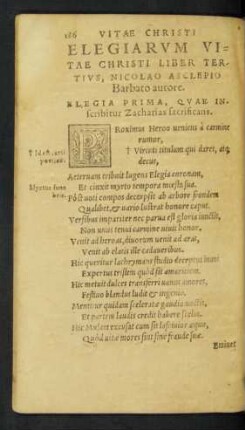 186 VITAE CHRISTI
ELEGIARVM VI-
TAE CHRISTI LIBER TER-
TIVS, NICOLAO ASCLEPIO
Barbato autore.
ELEGIA PRIMA, QVAE IN-
scribitur Zacharias sacrificans.
PRoximus Heros uenienti à carmine
rumor,
† Virtuti titulum qui daret, atque
decus,
Aeternam tribuit lugens Elegia coronam,
Et cinxit myrto tempora mœsta sua.
Pòst uoti compos decerpsit ab arbore frondem
Qualibet, & uario lustrat honore caput.
Versibus impariter nec parua est gloria
Non unus tenui carmine uiuit honor.
Venit ad heroas, diuorum uenit ad aras,
Venit ab elatis ille cadaueribus.
Hic queritur lachrymans studio deceptus
Expertus tristem quòd sit amaritiem.
Hic metuit dulces transferri uatis amores,
Festiuo blandus ludit & ingenio.
Mentitur quidam scelerata gaudia
Et partem laudis credit habere
excusat cum sit lasciuior æquo,
Quòd uitæ mores sint sine fraude suæ.